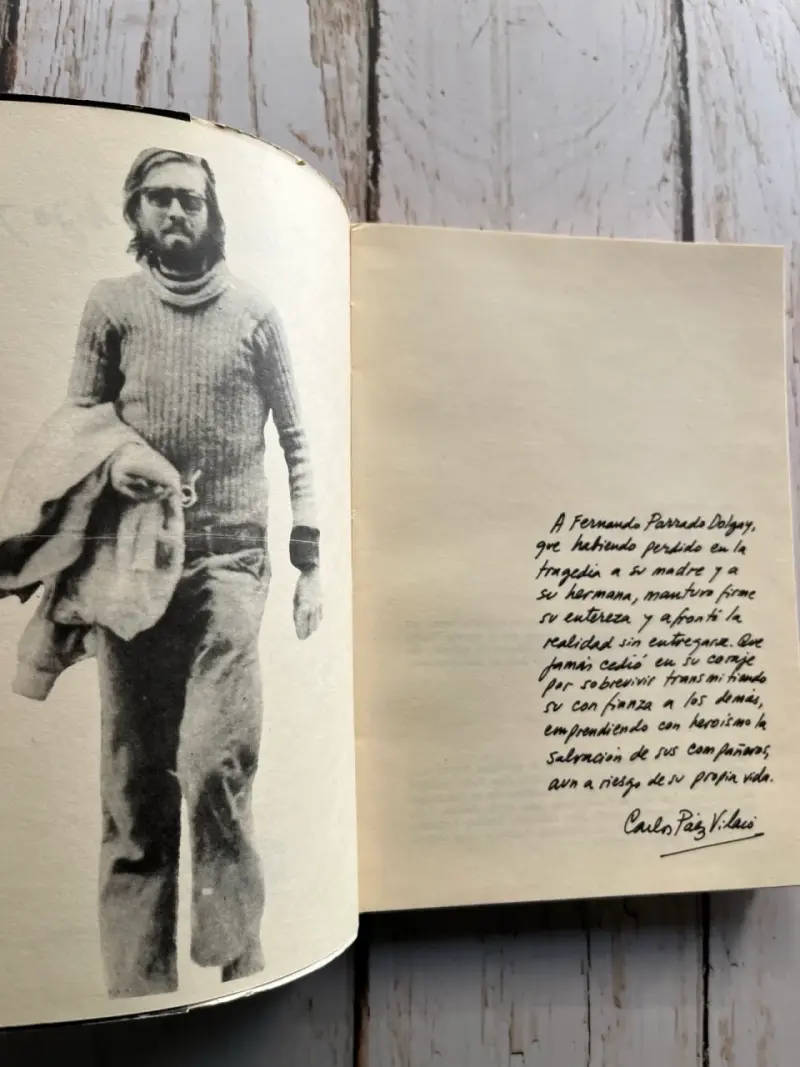 A Fernando Parrado Dolgay,
que habiendo perdido en la
tragedia a su madre y a
su hermana, mantuvo firme
su entereza y afrontó la
realidad sin entregarse. Que
jamás cedió en su coraje
por sobrevivir transmitiendo
su confianza a los demás,
emprendiendo con heroísmo la
salvación de sus compañeros,
aun a riesgo de su propia vida.
Carlos Páez Vilaró